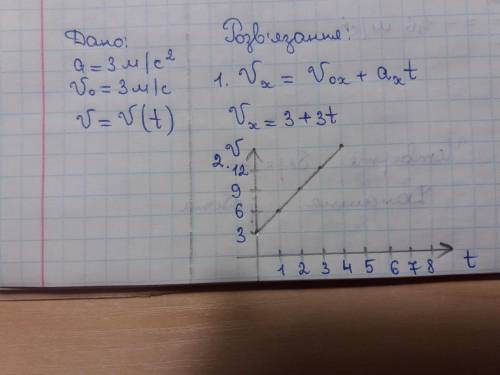 Дано:
a = 3 м/с²
V₀ = 3 м/с
V = V(t)
Розв'язання:
1. Vₓ = V₀ₓ + aₓt
Vₓ = 3 + 3t
2. V
12
9
6
3
1 2 3 4 5 6 7 8 t